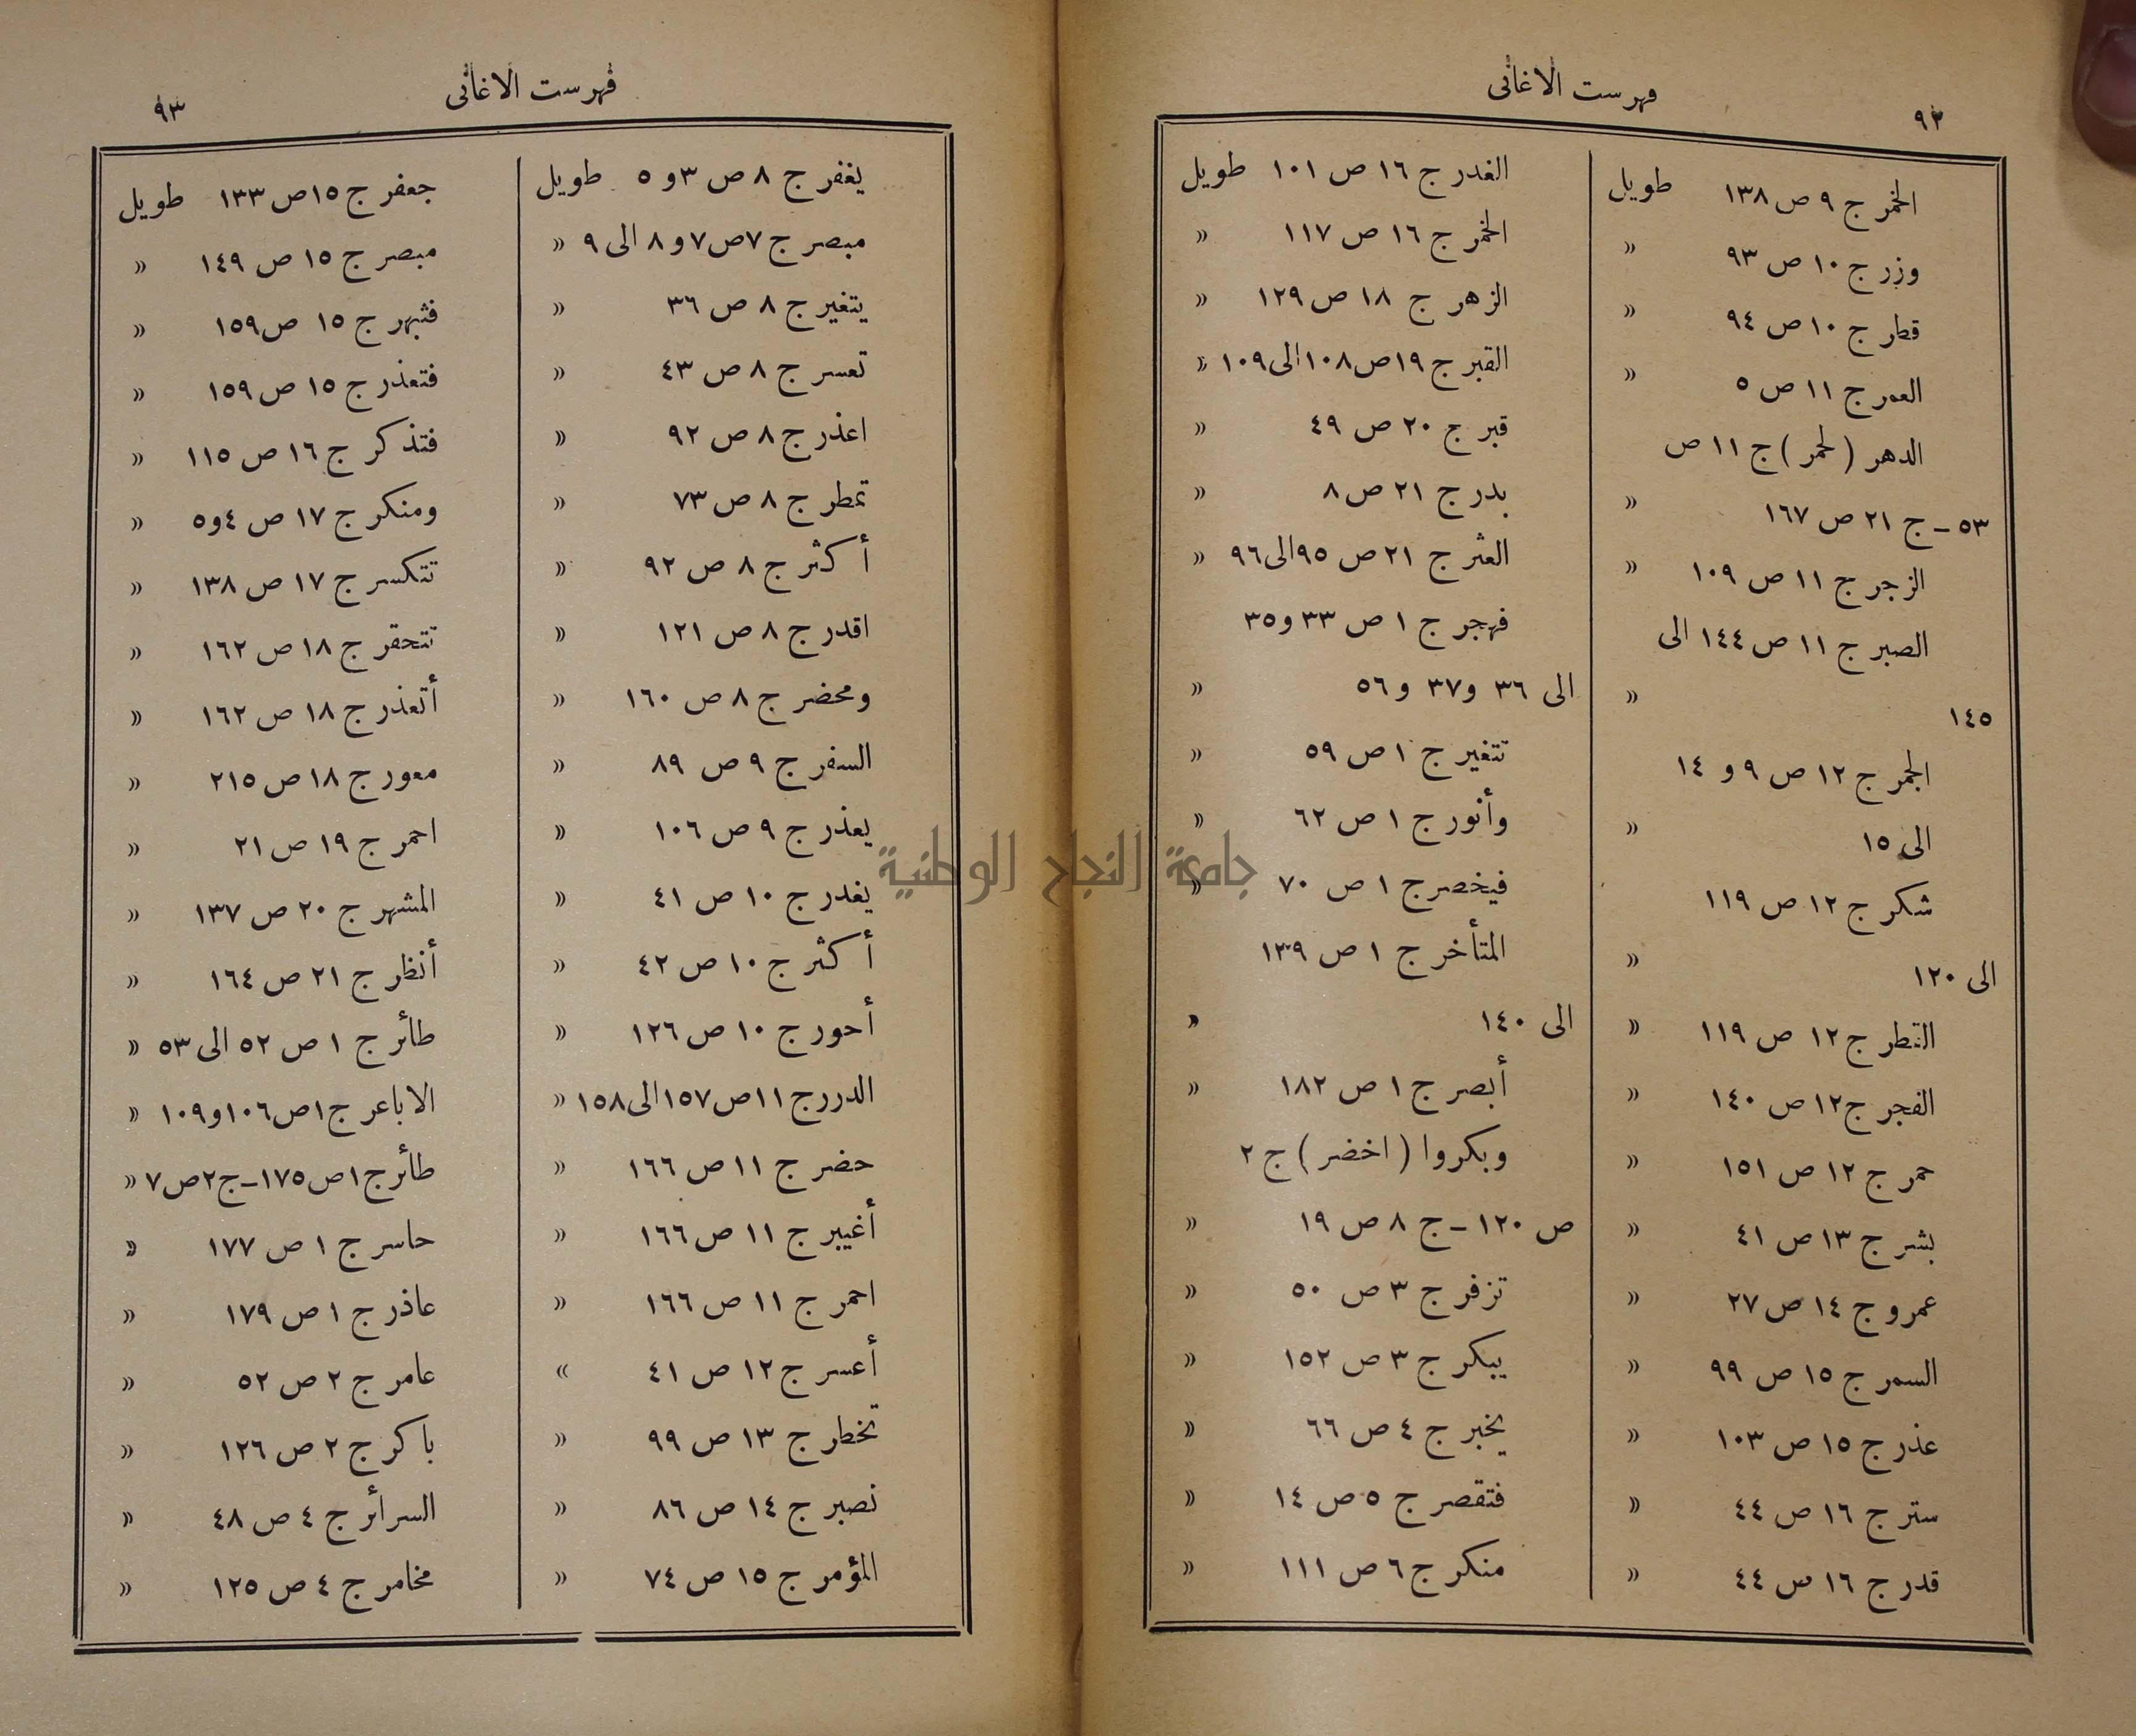 ٩٢
فهرست الاغانى
الخمر ج ٩ ص ١٣٨ طويل
وزر ج ١٠ ص ٩٣ «
قطار ج ١٠ ص ٩٤ «
العمر ج ١١ ص ٥ «
الدهر (لحمر) ج ١١ ص
٥٣ - ج ٢١ ص ١٦٧ «
الزجر ج ١١ ص ١٠٩ «
الصبر ج ١١ ص ١٤٤ الى
١٤٥ «
الجمر ج ١٢ ص ٩ و ١٤
الى ١٥ «
شكر ج ١٢ ص ١١٩
الى ١٢٠ «
القطر ج ١٢ ص ١١٩ «
الفجر ج ١٢ ص ١٤٠ «
حمر ج ١٢ ص ١٥١ «
بشر ج ١٣ ص ٤١ «
عمرو ج ١٤ ص ٢٧ «
السمر ج ١٥ ص ٩٩ «
عذر ج ١٥ ص ١٠٣ «
ستر ج ١٦ ص ٤٤ «
قدر ج ١٦ ص ٤٤ «
الغدر ج ١٦ ص ١٠١ طويل
الخمر ج ١٦ ص ١١٧ «
الزهر ج ١٨ ص ١٢٩ «
القبر ج ١٩ ص ١٠٨ الى ١٠٩ «
قبر ج ٢٠ ص ٤٩ «
بدر ج ٢١ ص ٨ «
العثر ج ٢١ ص ٩٥ الى ٩٦ «
فهجر ج ١ ص ٣٣ و ٣٥
الى ٣٦ و ٣٧ و ٥٦ «
تتغير ج ١ ص ٥٩ «
وأنور ج ١ ص ٦٢ «
فيخصر ج ١ ص ٧٠ «
المتأخر ج ١ ص ١٣٩
الى ١٤٠ «
أبصر ج ١ ص ١٨٢ «
وبكروا (اخضر) ج ٢
ص ١٢٠ - ج ٨ ص ١٩ «
تزفر ج ٣ ص ٥٠ «
يبكر ج ٣ ص ١٥٢ «
يخبر ج ٤ ص ٦٦ «
فتقصر ج ٥ ص ١٤ «
منكر ج ٦ ص ١١١ «
فهرست الاغانى
٩٣
يغفر ج ٨ ص ٣ و ٥ طويل
مبصر ج ٧ ص ٧ و ٨ الى ٩ «
يتغير ج ٨ ص ٣٦ «
تعسر ج ٨ ص ٤٣ «
اعذر ج ٨ ص ٩٢ «
تمطر ج ٨ ص ٧٣ «
أكثر ج ٨ ص ٩٢ «
اقدر ج ٨ ص ١٢١ «
ومحضر ج ٨ ص ١٦٠ «
السفر ج ٩ ص ٨٩ «
يعذر ج ٩ ص ١٠٦ «
يغدر ج ١٠ ص ٤١ «
أكثر ج ١٠ ص ٤٢ «
أحور ج ١٠ ص ١٢٦ «
الدرر ج ١١ ص ١٥٧ الى ١٥٨ «
حضر ج ١١ ص ١٦٦ «
أغيبر ج ١١ ص ١٦٦ «
احمر ج ١١ ص ١٦٦ «
أعسر ج ١٢ ص ٤١ »
تخطر ج ١٣ ص ٩٩ «
نصبر ج ١٤ ص ٨٦ «
المؤمر ج ١٥ ص ٧٤ «
جعفر ج ١٥ ص ١٣٣ طويل
مبصر ج ١٥ ص ١٤٩ «
فثبهر ج ١٥ ص ١٥٩ «
فتعذر ج ١٥ ص ١٥٩ «
فتذكر ج ١٦ ص ١١٥ «
ومنكر ج ١٧ ص ٤ و ٥ «
تتكسر ج ١٧ ص ١٣٨ «
تتحقر ج ١٨ ص ١٦٢ «
أتعذر ج ١٨ ص ١٦٢ «
معور ج ١٨ ص ٢١٥ «
احمر ج ١٩ ص ٢١ «
المشهر ج ٢٠ ص ١٣٧ «
أنظر ج ٢١ ص ١٦٤ «
طائر ج ١ ص ٥٢ الى ٥٣ «
الاباعر ج ١ ص ١٠٦ و ١٠٩ «
طائر ج ١ ص ١٧٥ - ج ٢ ص ٧ «
حاسر ج ١ ص ١٧٧ «
عاذر ج ١ ص ١٧٩ «
عامر ج ٢ ص ٥٢ «
باكر ج ٢ ص ١٢٦ «
السرائر ج ٤ ص ٤٨ «
مخامر ج ٤ ص ١٢٥ «
جامعة النجاح الوطنية